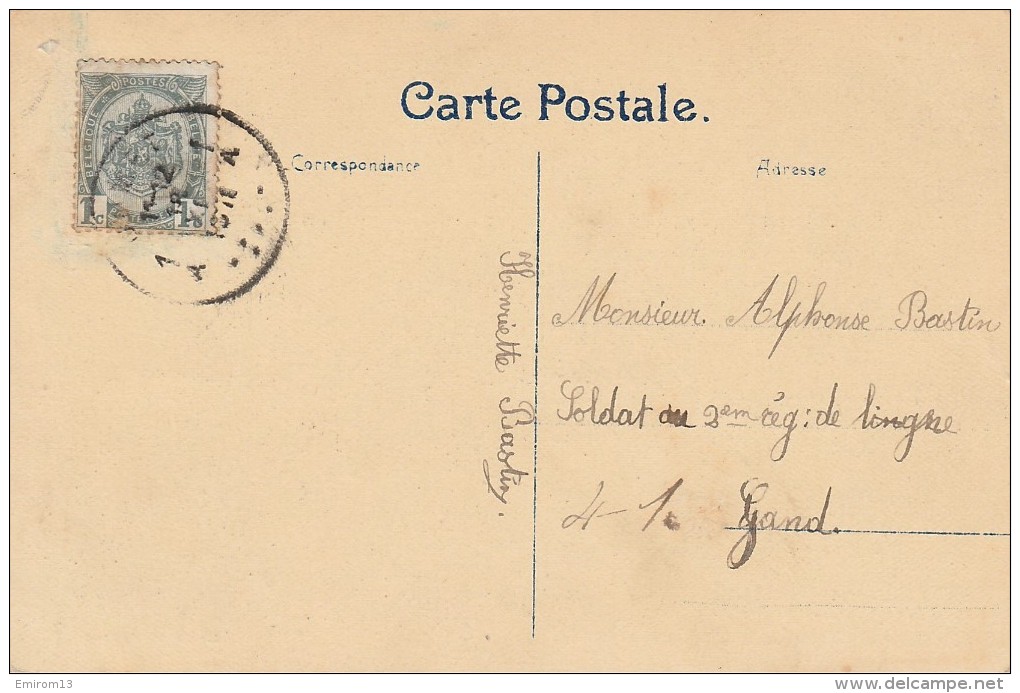 Carte Postale.
Correspondance
Adresse
POSTES
BELGIQUE
1c
1c
Henriette Bastin.
Monsieur Alphonse Bastin
Soldat au 2em rég: de lingne
4-1. Gand.
Emirom13
www.delcampe.net